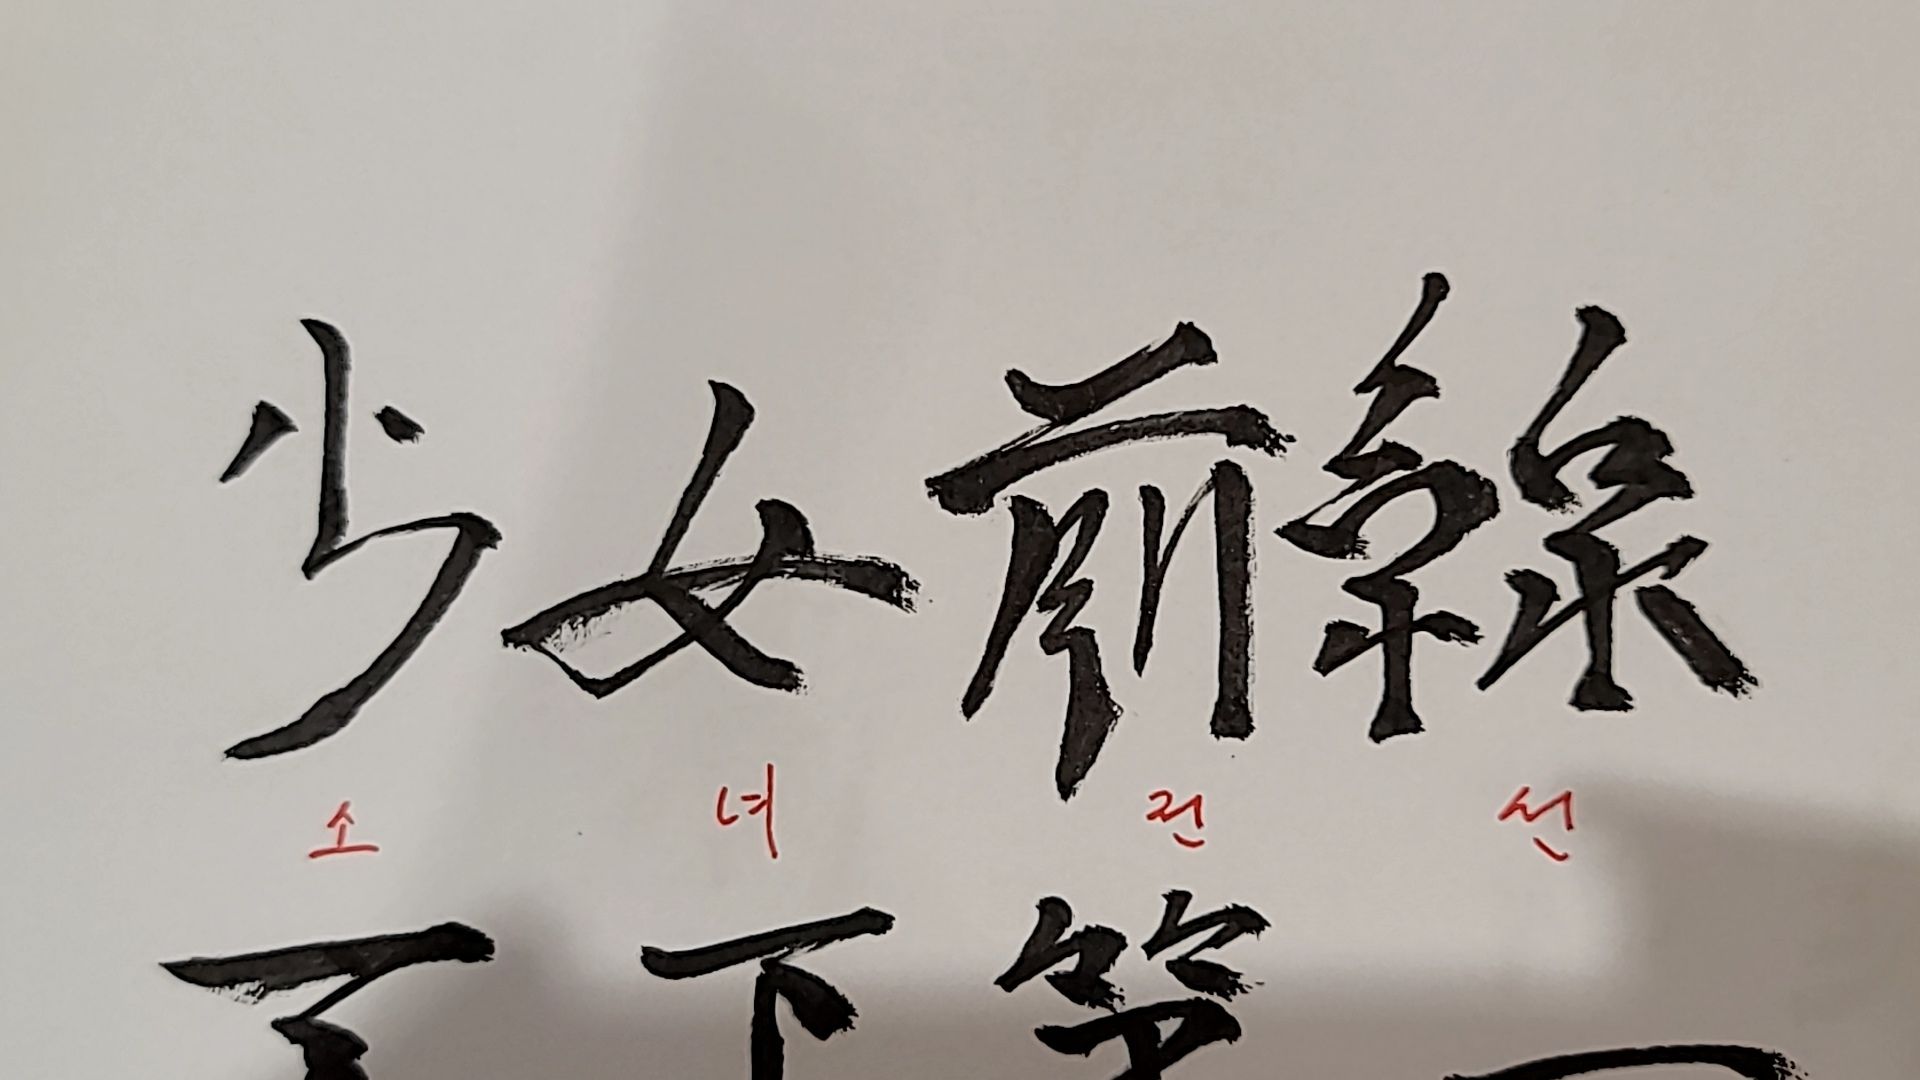 少女前線
소 녀 전 선
天下第一